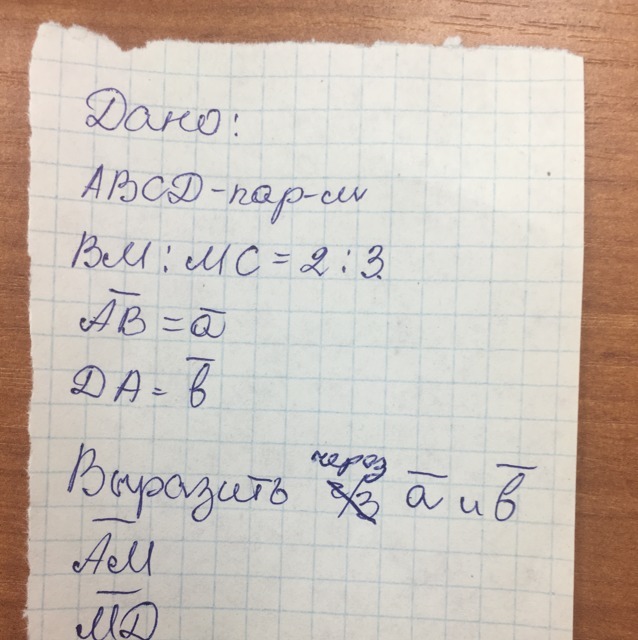 Дано:
ABCD-пар-м
BM:MC=2:3
A̅B̅=a̅
DA=b̅
Выразить через a̅ и b̅
A̅M̅
M̅D̅